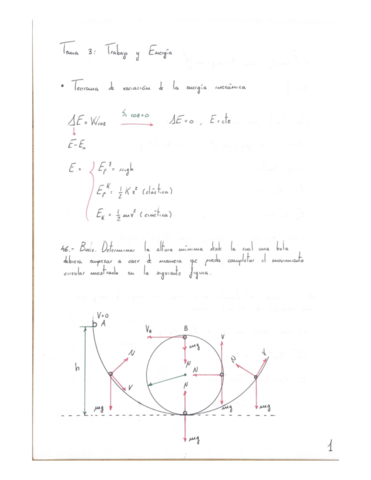 Tema 3: Trabajo y Energía
• Teorema de variación de la energía mecánica
ΔE = Wnc  Si Wnc=0  ΔE=0, E=cte
E-E₀
E =
Ep^g = mgh
Ep^k = 1/2 K x² (elástica)
Ek = 1/2 mv² (cinética)
46.- Bucle. Determinar la altura mínima desde la cual una bola
debería empezar a caer de manera que pueda completar el movimiento
circular mostrado en la siguiente figura.
V=0
A
h
N
V
mg
VB
B
mg
N
N
mg
V
N
mg
N
V
mg
1